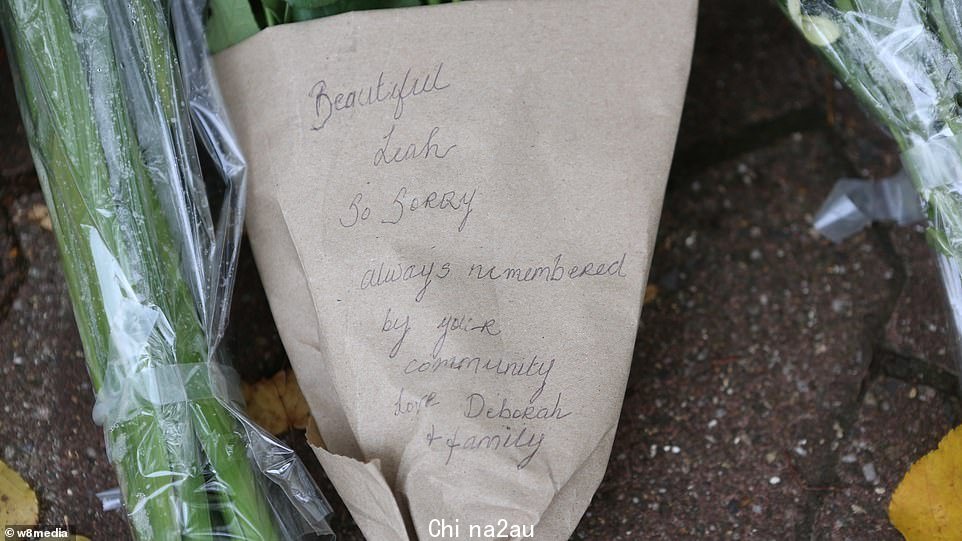 Beautiful
Leah
So SORRY
always remembered
by your
community
love Deborah
+ family
© w8media
Chi na2au